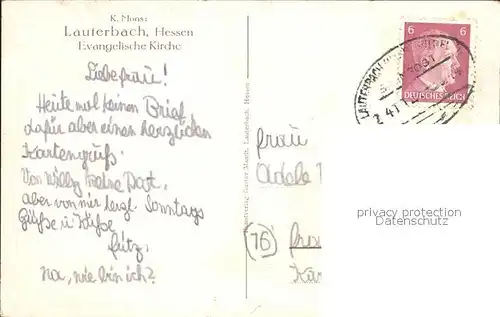 K. Mons:
Lauterbach, Hessen
Evangelische Kirche
Liebe Frau!
Heute mal keinen Brief
dafür aber einen herzlichen
Kartengruß.
Von Willy keine Post,
aber von mir herzl. Sonntags
Grüße u. Küße
Fritz.
Na, wie bin ich?
6
6
DEUTSCHES REICH
LAUTERBACH
Frau
Adele
(16)
privacy protection
Datenschutz